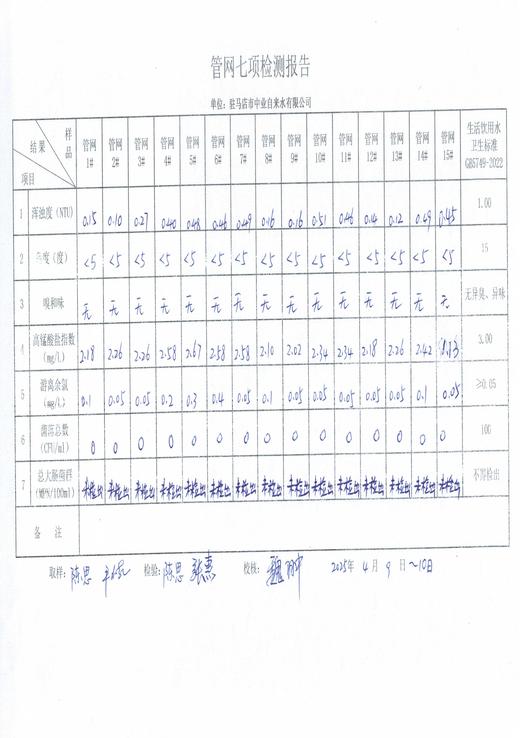 管网七项检测报告
单位：驻马店市中业自来水有限公司
样品 结果 项目 管网1# 管网2# 管网3# 管网4# 管网5# 管网6# 管网7# 管网8# 管网9# 管网10# 管网11# 管网12# 管网13# 管网14# 管网15# 生活饮用水卫生标准GB5749-2022
1 浑浊度（NTU） 0.15 0.10 0.27 0.40 0.48 0.46 0.49 0.16 0.16 0.51 0.46 0.14 0.12 0.49 0.45 1.00
2 色度（度） <5 <5 <5 <5 <5 <5 <5 <5 <5 <5 <5 <5 <5 <5 <5 15
3 嗅和味 无 无 无 无 无 无 无 无 无 无 无 无 无 无 无 无异臭、异味
4 高锰酸盐指数（mg/L） 2.18 2.26 2.26 2.58 2.67 2.58 2.58 2.10 2.02 2.34 2.34 2.18 2.26 2.42 3.00
5 游离余氯（mg/L） 0.1 0.05 0.05 0.2 0.3 0.4 0.05 0.1 0.05 0.05 0.05 0.05 0.05 0.1 0.05 ≥0.05
6 菌落总数（CFU/ml） 0 0 0 0 0 0 0 0 0 0 0 0 0 0 0 100
7 总大肠菌群（MPN/100ml） 未检出 未检出 未检出 未检出 未检出 未检出 未检出 未检出 未检出 未检出 未检出 未检出 未检出 未检出 未检出 不得检出
备 注
取样：陈思 检验：陈思 张熹 校核： 2025年 4月 9日~10日